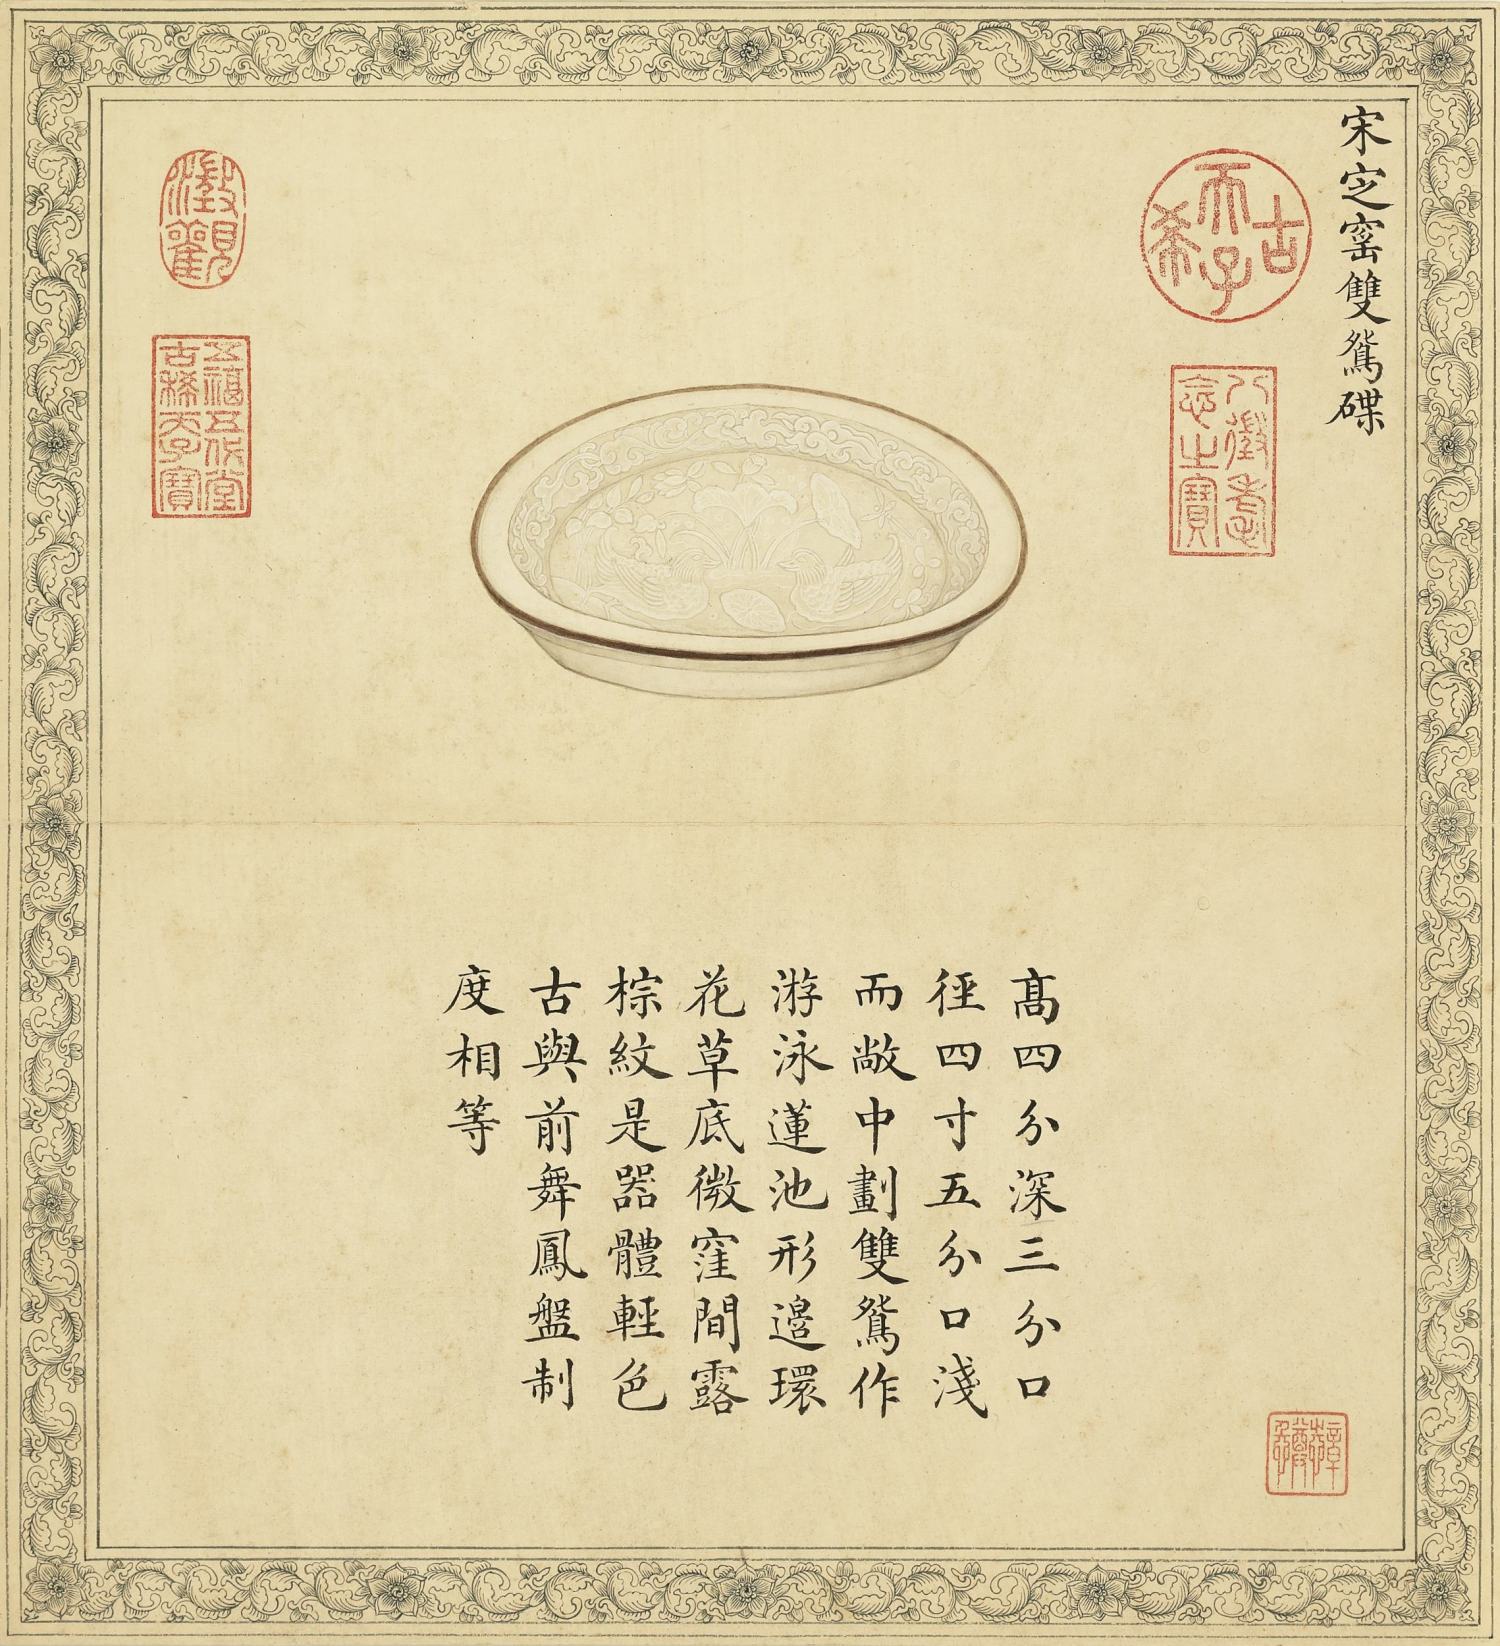 宋定窰雙鴛碟
古希天子
八徵耄念之寶
澂觀
五福五代堂古稀天子寶
高四分深三分口
徑四寸五分口淺
而敞中劃雙鴛作
游泳蓮池形邊環
花草底微窪間露
棕紋是器體輕色
古與前舞鳳盤制
度相等